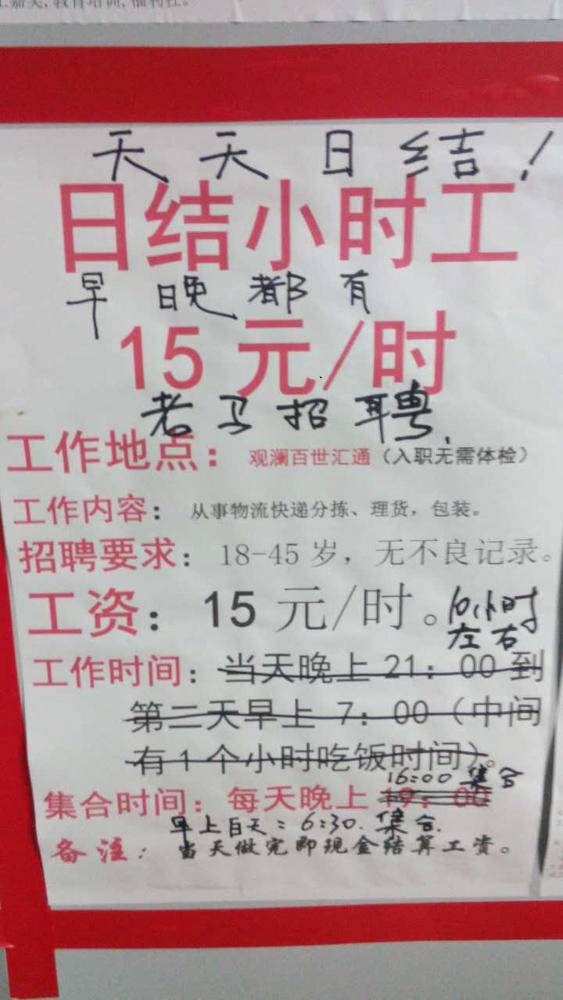 天天日结!
日结小时工
早晚都有
15元/时
老马招聘
工作地点：观澜百世汇通（入职无需体检）
工作内容：从事物流快递分拣、理货，包装。
招聘要求：18-45岁，无不良记录。
工资：15元/时。10小时
左右
工作时间：当天晚上21：00到
第二天早上7：00（中间
有1个小时吃饭时间)。
16:00集合
集合时间：每天晚上19：00
早上白天：6:30.集合.
备注：当天做完即现金结算工资。